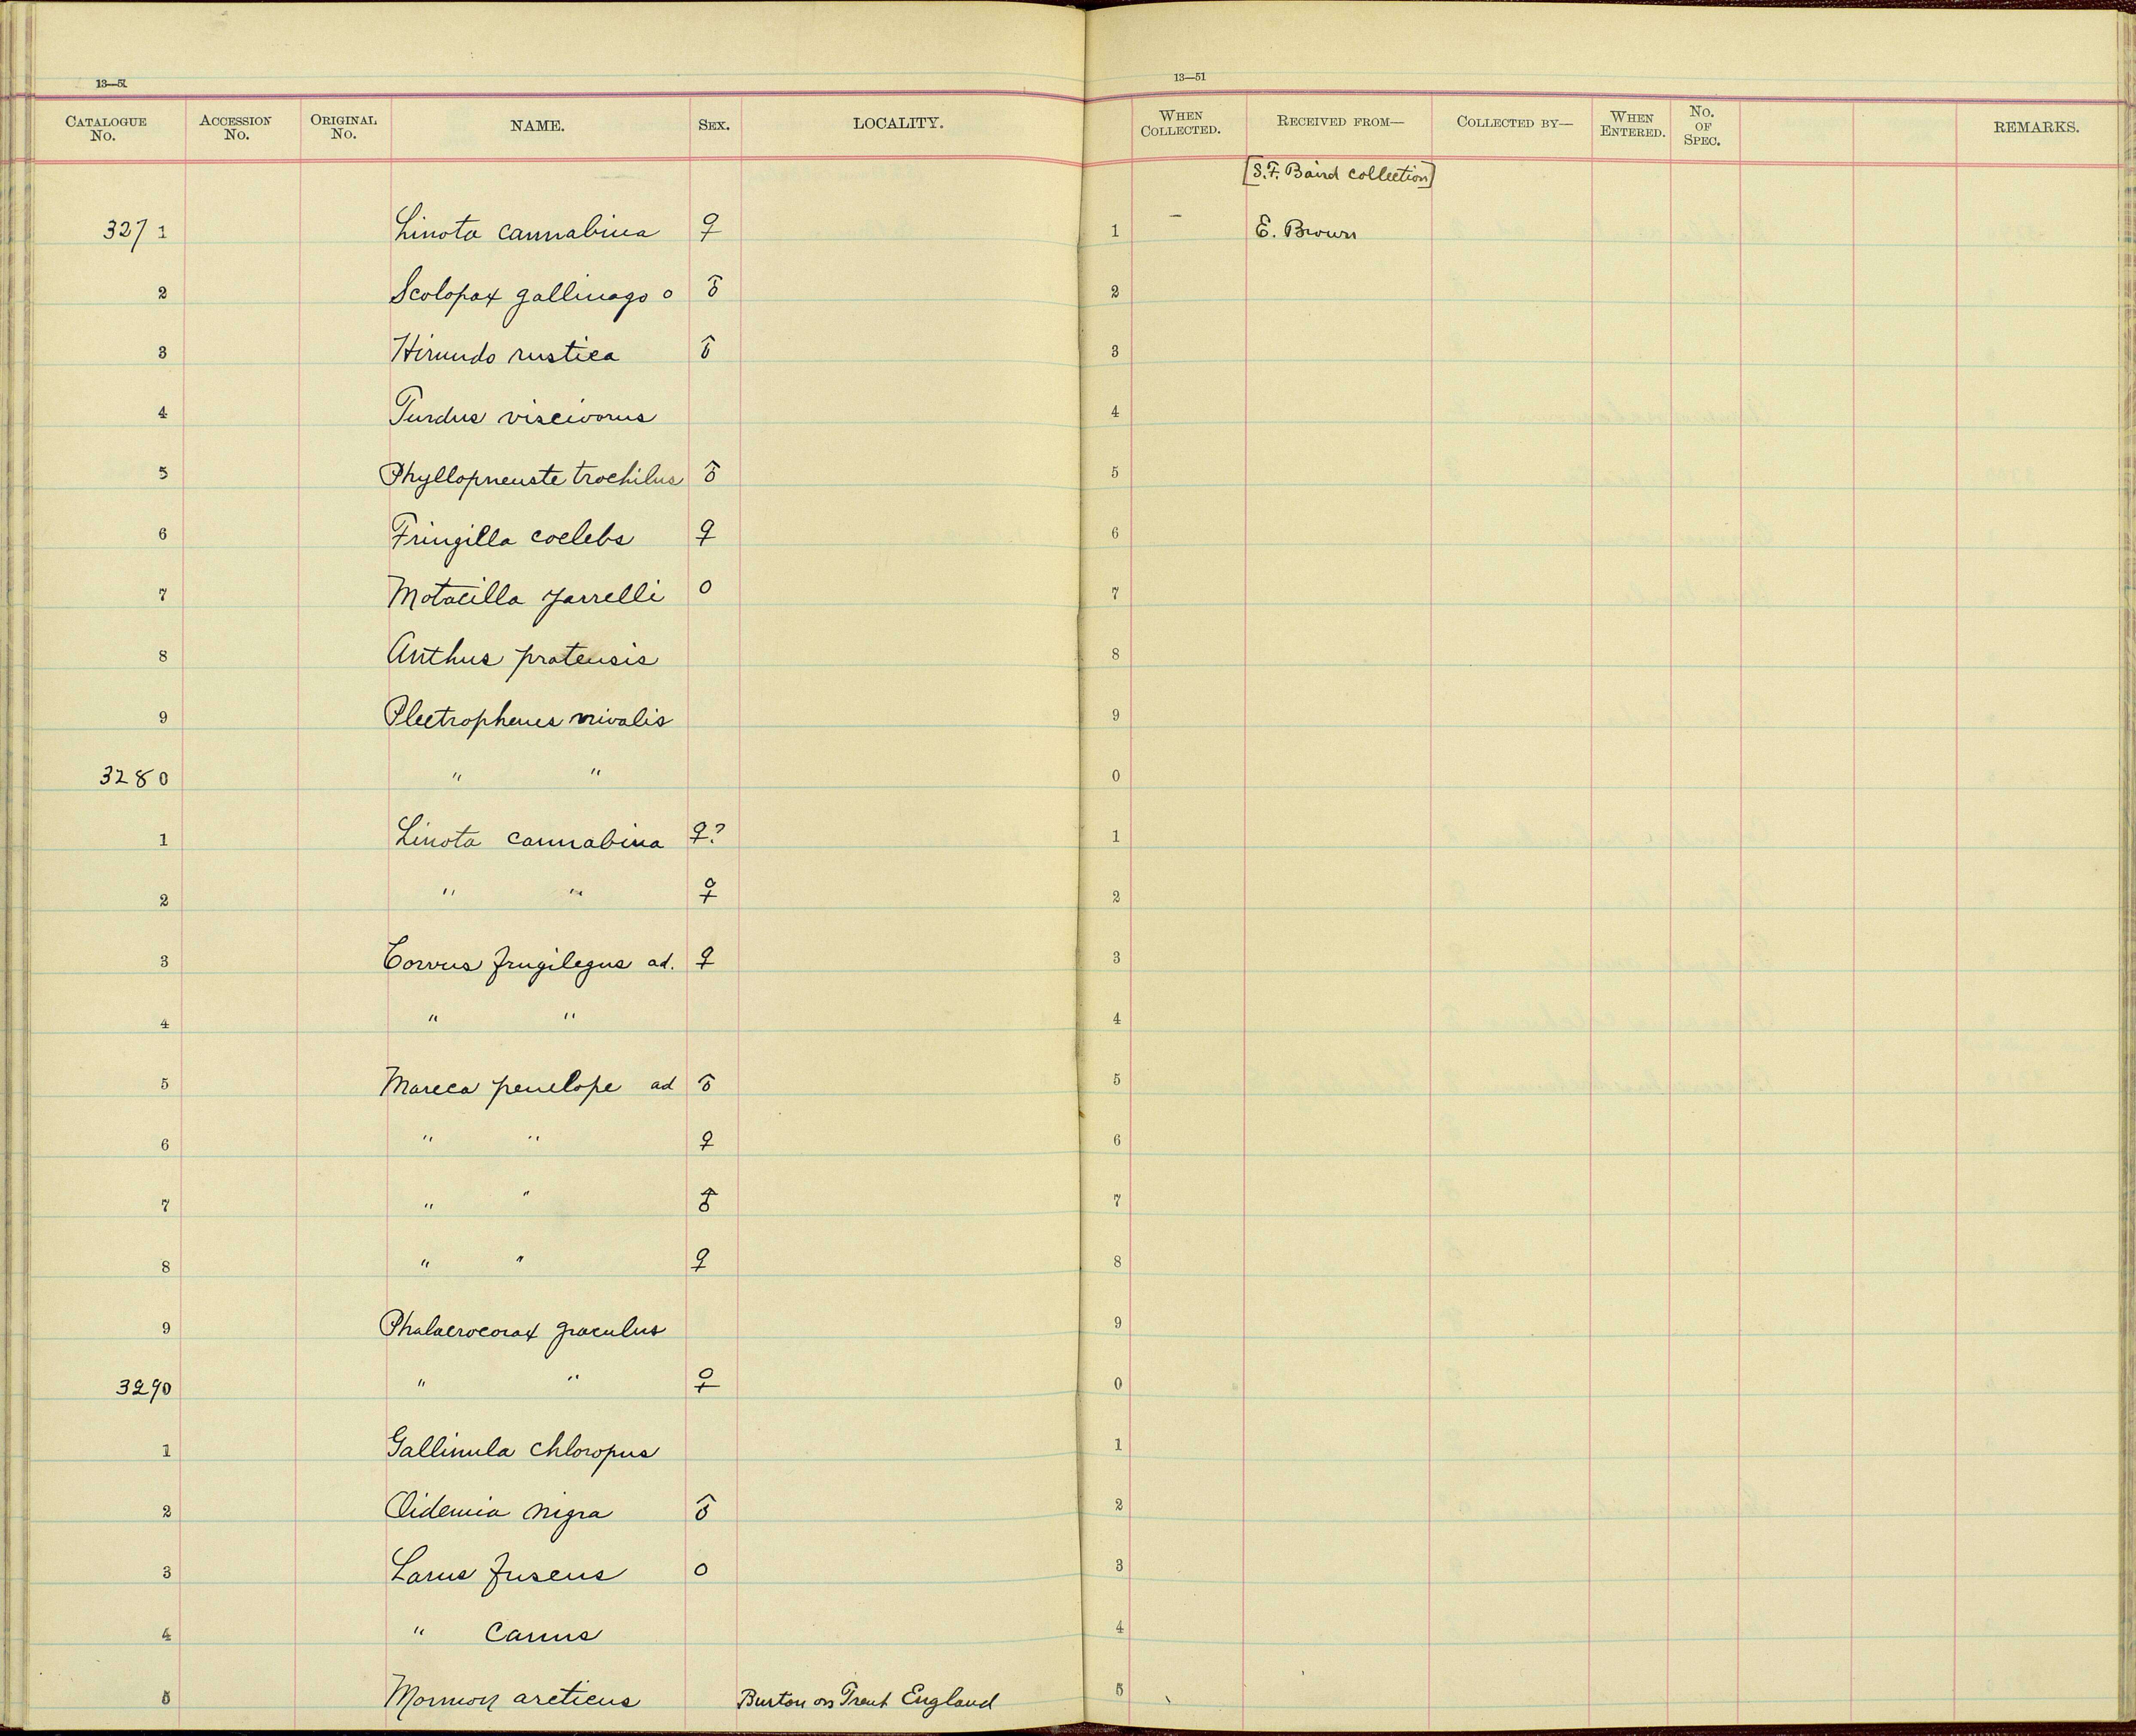 13—51
13—51
CATALOGUE No. ACCESSION No. ORIGINAL No. NAME. SEX. LOCALITY. WHEN COLLECTED. RECEIVED FROM— COLLECTED BY— WHEN ENTERED. No. OF SPEC. REMARKS.
[S.F. Baird collection]
3271 Linota cannabina ♀ 1 — E. Brown
2 Scolopax gallinago o ♂ 2
3 Hirundo rustica ♂ 3
4 Turdus viscivorus 4
5 Phyllopneuste trochilus ♂ 5
6 Fringilla coelebs ♀ 6
7 Motacilla Yarrelli o 7
8 Anthus pratensis 8
9 Plectrophenes nivalis 9
3280 " " 0
1 Linota cannabina ♀? 1
2 " " ♀ 2
3 Corvus frugilegus ad. ♀ 3
4 " " 4
5 Mareca penelope ad ♂ 5
6 " " ♀ 6
7 " " ♂ 7
8 " " ♀ 8
9 Phalacrocorax graculus 9
3290 " " ♀ 0
1 Gallinula chloropus 1
2 Oidemia nigra ♂ 2
3 Larus fuscus o 3
4 " Canus 4
5 Mormon arcticus Burton on Trent England 5